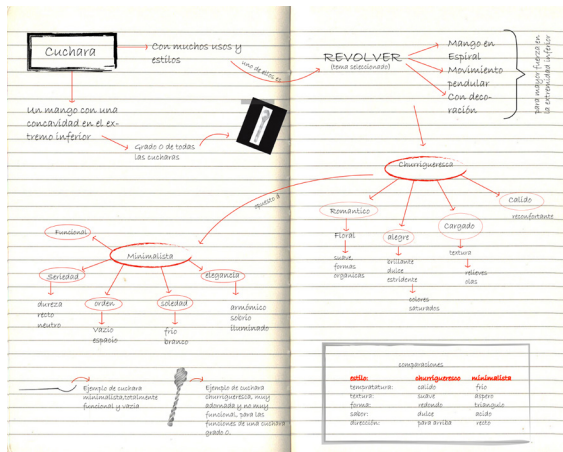 Cuchara
Con muchos usos y
estilos
uno de ellos es
REVOLVER
(tema seleccionado)
Mango en
Espiral
Movimiento
pendular
Con deco-
ración
para mayor fuerza en
la extremidad inferior
Un mango con una
concavidad en el ex-
tremo inferior
Grado 0 de todas
las cucharas
Churrigueresca
opuesto a
Romantico
Floral
suave
formas
organicas
alegre
brillante
dulce
estridente
colores
saturados
Cargado
textura
relieves
olas
Calido
reconfortante
Minimalista
Funcional
Seriedad
dureza
recto
neutro
orden
vazio
espacio
soledad
frio
blanco
elegancia
armómico
sobrio
iluminado
Ejemplo de cuchara
minimalista,totalmente
funcional y vazia
Ejemplo de cuchara
churrigueresca, muy
adornada y no muy
funcional, para las
funciones de una cuchara
grado 0.
comparaciones
estilo: churrigueresco minimalista
temperatatura: calido frio
textura: suave aspero
forma: redondo triangulo
sabor: dulce acido
dirección: para arriba recto